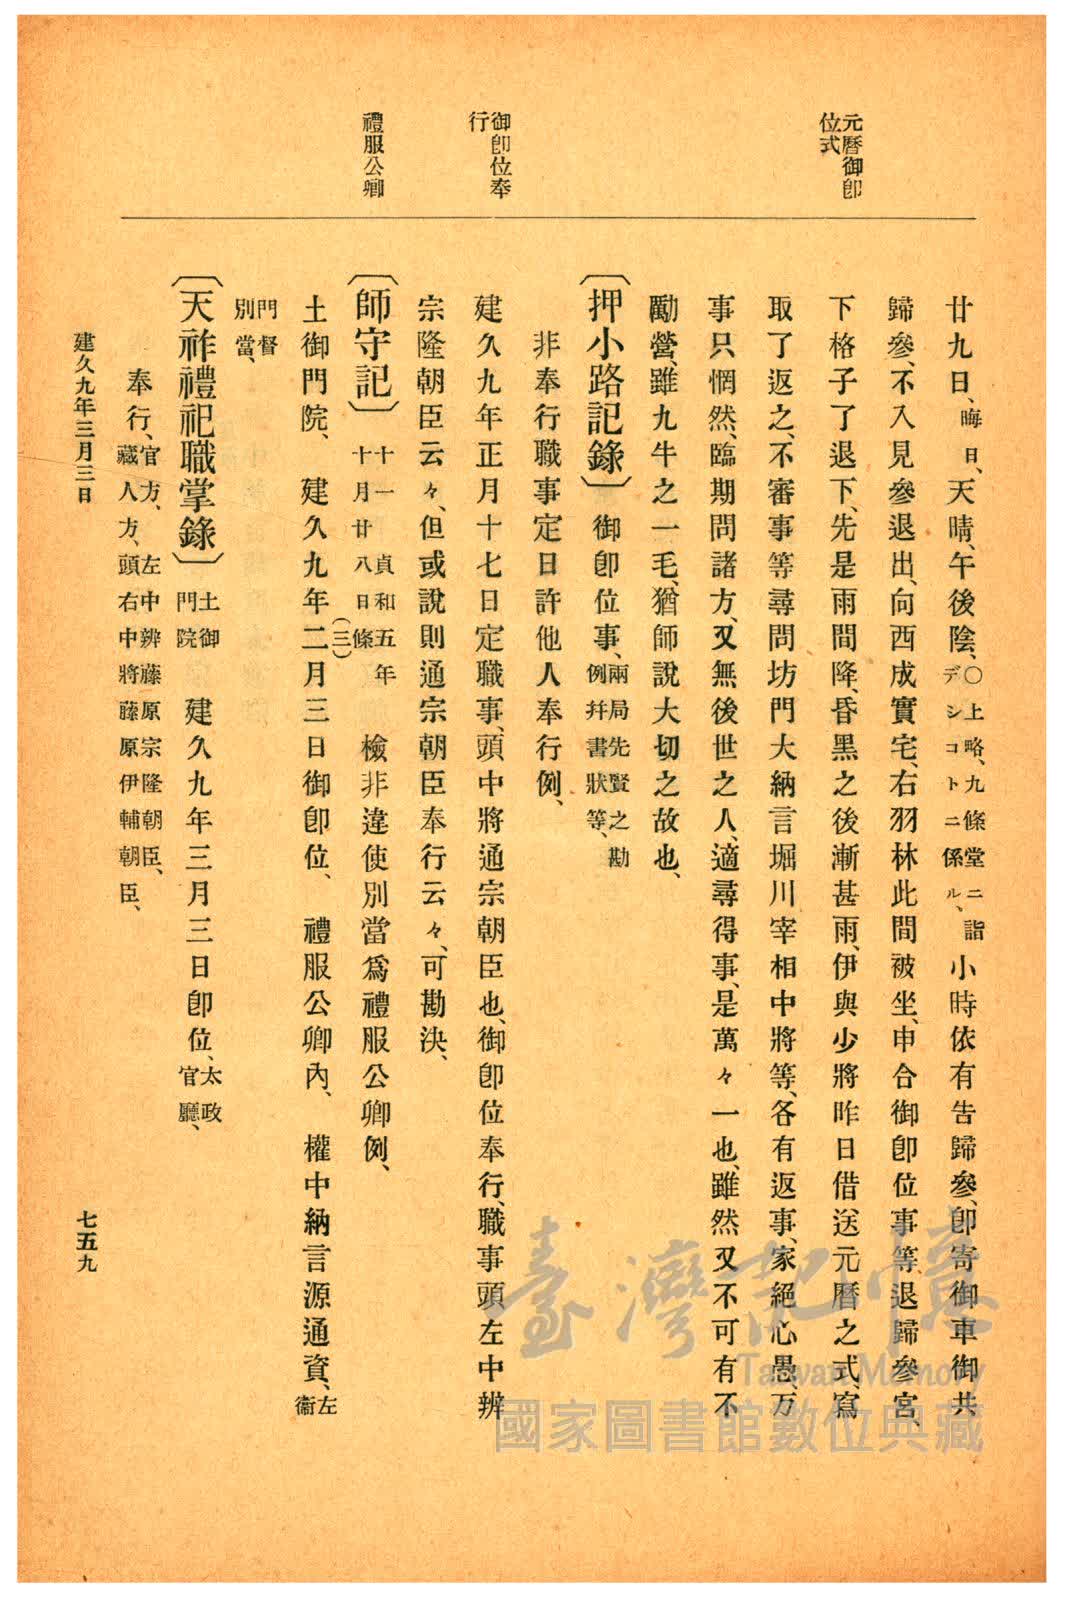 元曆御卽
位式
御卽位奉
行
禮服公卿
廿九日、晦日、天晴、午後陰、〇上略、九條堂ニ詣デシコトニ係ル、小時依有告歸參、卽寄御車御共
歸參、不入見參退出、向西成實宅、右羽林此間被坐、申合御卽位事等、退歸參宮、
下格子了退下、先是雨間降、昏黑之後漸甚雨、伊與少將昨日借送元曆之式、寫
取了返之、不審事等尋問坊門大納言堀川宰相中將等、各有返事、家絕心愚、万
事只惘然、臨期問諸方、又無後世之人、適尋得事、是萬々一也、雖然又不可有不
勵營、雖九牛之一毛、猶師說大切之故也、
〔押小路記錄〕御卽位事、兩局先賢之勘例幷書狀等、
非奉行職事定日許他人奉行例、
建久九年正月十七日定職事、頭中將通宗朝臣也、御卽位奉行、職事頭左中辨
宗隆朝臣云々、但或說則通宗朝臣奉行云々、可勘決、
〔師守記〕十一 貞和五年十月廿八日條 檢非違使別當爲禮服公卿例、
土御門院、 建久九年二(三)月三日御卽位、 禮服公卿內、 權中納言源通資、左衞
門督
別當、
〔天祚禮祀職掌錄〕土御門院 建久九年三月三日卽位、太政官廳、
奉行、官方、左中辨藤原宗隆朝臣、
藏人方、頭右中將藤原伊輔朝臣、
建久九年三月三日
七五九
臺灣記憶
Taiwan Memory
國家圖書館數位典藏